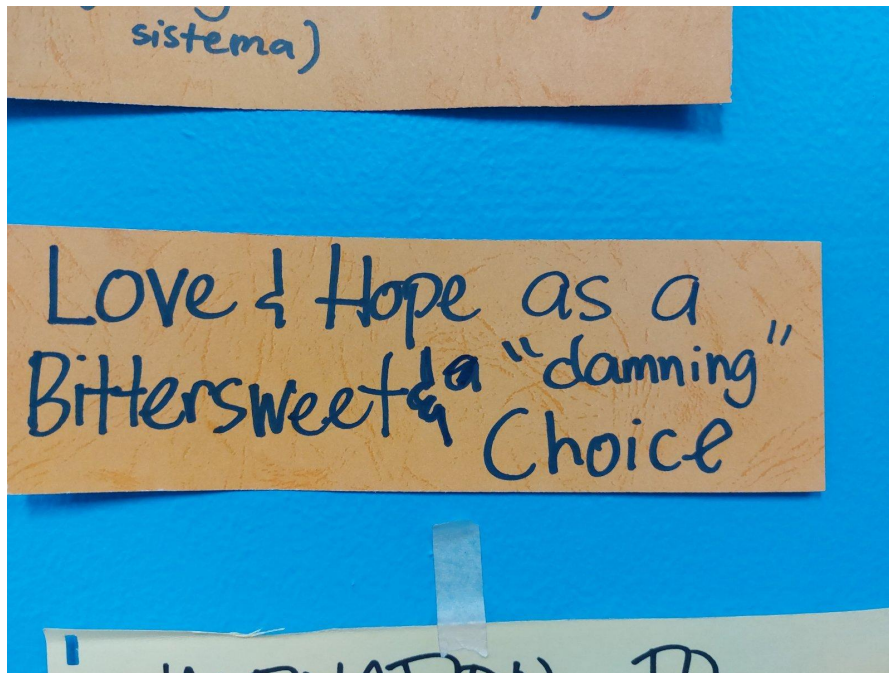 sistema)
Love & Hope as a
Bittersweet & a "damning"
Choice